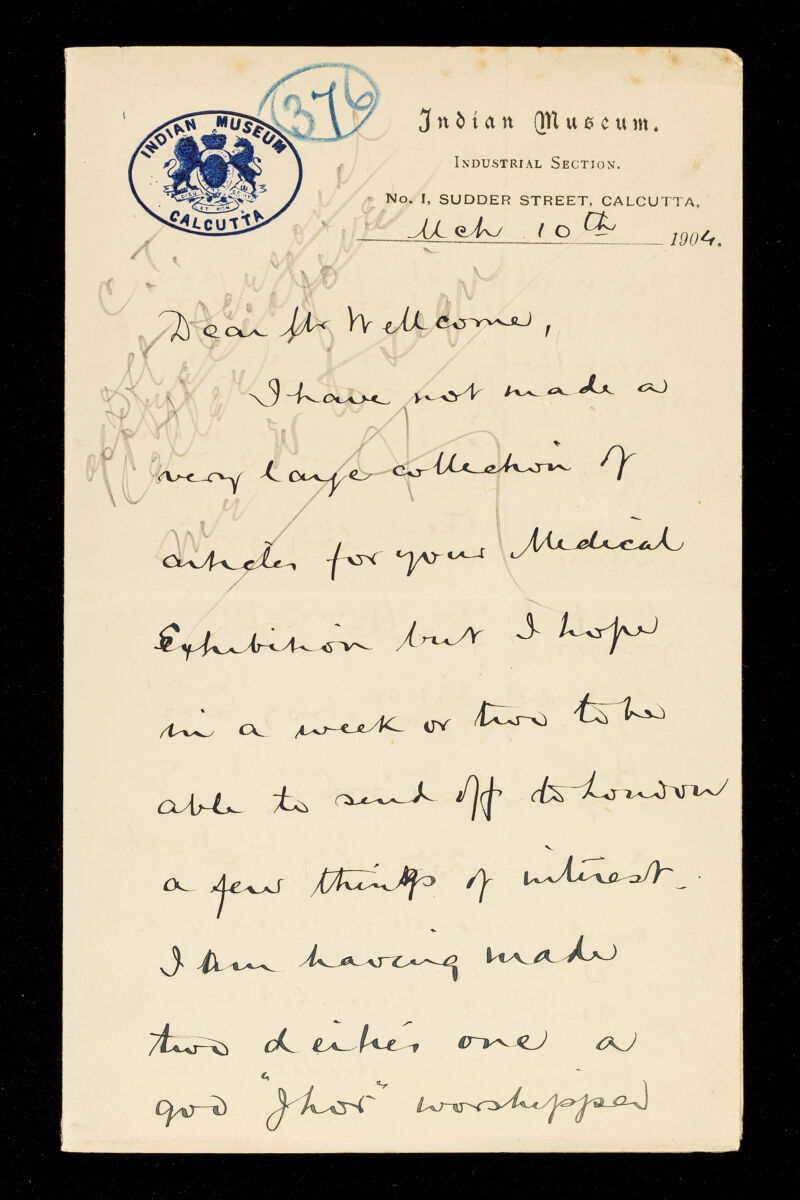 376
INDIAN MUSEUM
CALCUTTA
Indian Museum.
INDUSTRIAL SECTION.
No. 1, SUDDER STREET, CALCUTTA,
Mch 10th 1904.
C.T.
personal
appreciative
letter
Mr W to sign
Dear Mr Wellcome,
I have not made a
very large collection of
articles for your Medical
Exhibition but I hope
in a week or two to be
able to send off to London
a few things of interest.
I am having made
two deities one a
god "Jhor" worshipped